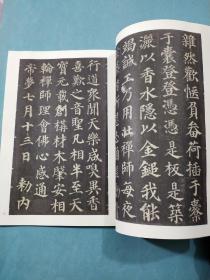 雜然歡愜負畚荷插于橐
于囊登登憑憑是板是築
灑以香水隱以金鎚我能
竭誠工乃用壯禪師每夜
行道眾聞天樂咸嗅異香
喜歎之音聖凡相半至天
寶元載創構材木肇安相
輪禪師理會佛心感通
帝夢七月十三日 勑內